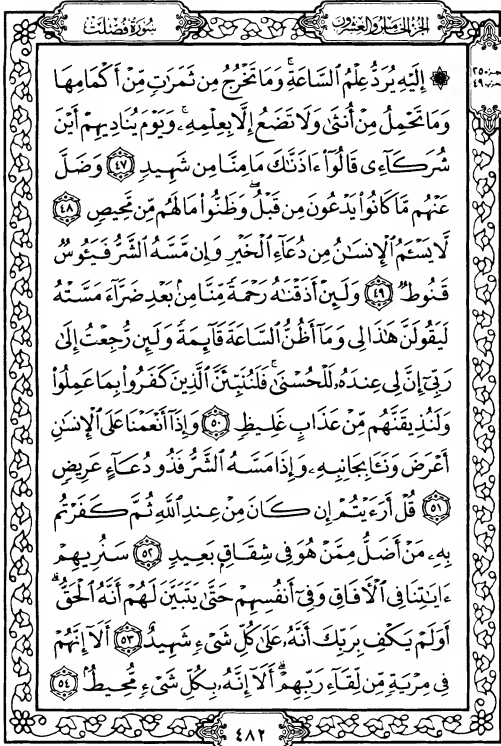 الجزء الخامس والعشرون
سورة فصلت
جزء ٢٥
حزب ٤٩
۞ إِلَيْهِ يُرَدُّ عِلْمُ ٱلسَّاعَةِ ۚ وَمَا تَخْرُجُ مِن ثَمَرَٰتٍ مِّنْ أَكْمَامِهَا
وَمَا تَحْمِلُ مِنْ أُنثَىٰ وَلَا تَضَعُ إِلَّا بِعِلْمِهِۦ ۚ وَيَوْمَ يُنَادِيهِمْ أَيْنَ
شُرَكَآءِى قَالُوٓا۟ ءَاذَنَّـٰكَ مَا مِنَّا مِن شَهِيدٍ ٤٧ وَضَلَّ
عَنْهُم مَّا كَانُوا۟ يَدْعُونَ مِن قَبْلُ ۖ وَظَنُّوا۟ مَا لَهُم مِّن مَّحِيصٍ ٤٨
لَّا يَسْـَٔمُ ٱلْإِنسَـٰنُ مِن دُعَآءِ ٱلْخَيْرِ وَإِن مَّسَّهُ ٱلشَّرُّ فَيَـُٔوسٌ
قَنُوطٌ ٤٩ وَلَئِنْ أَذَقْنَـٰهُ رَحْمَةً مِّنَّا مِنۢ بَعْدِ ضَرَّآءَ مَسَّتْهُ
لَيَقُولَنَّ هَـٰذَا لِى وَمَآ أَظُنُّ ٱلسَّاعَةَ قَآئِمَةً وَلَئِن رُّجِعْتُ إِلَىٰ
رَبِّىٓ إِنَّ لِى عِندَهُۥ لَلْحُسْنَىٰ ۚ فَلَنُنَبِّئَنَّ ٱلَّذِينَ كَفَرُوا۟ بِمَا عَمِلُوا۟
وَلَنُذِيقَنَّهُم مِّنْ عَذَابٍ غَلِيظٍ ٥٠ وَإِذَآ أَنْعَمْنَا عَلَى ٱلْإِنسَـٰنِ
أَعْرَضَ وَنَـَٔا بِجَانِبِهِۦ وَإِذَا مَسَّهُ ٱلشَّرُّ فَذُو دُعَآءٍ عَرِيضٍ
٥١ قُلْ أَرَءَيْتُمْ إِن كَانَ مِنْ عِندِ ٱللَّهِ ثُمَّ كَفَرْتُم
بِهِۦ مَنْ أَضَلُّ مِمَّنْ هُوَ فِى شِقَاقٍۭ بَعِيدٍ ٥٢ سَنُرِيهِمْ
ءَايَـٰتِنَا فِى ٱلْـَٔافَاقِ وَفِىٓ أَنفُسِهِمْ حَتَّىٰ يَتَبَيَّنَ لَهُمْ أَنَّهُ ٱلْحَقُّ ۗ
أَوَلَمْ يَكْفِ بِرَبِّكَ أَنَّهُۥ عَلَىٰ كُلِّ شَىْءٍ شَهِيدٌ ٥٣ أَلَآ إِنَّهُمْ
فِى مِرْيَةٍ مِّن لِّقَآءِ رَبِّهِمْ ۗ أَلَآ إِنَّهُۥ بِكُلِّ شَىْءٍ مُّحِيطٌۢ ٥٤
٤٨٢